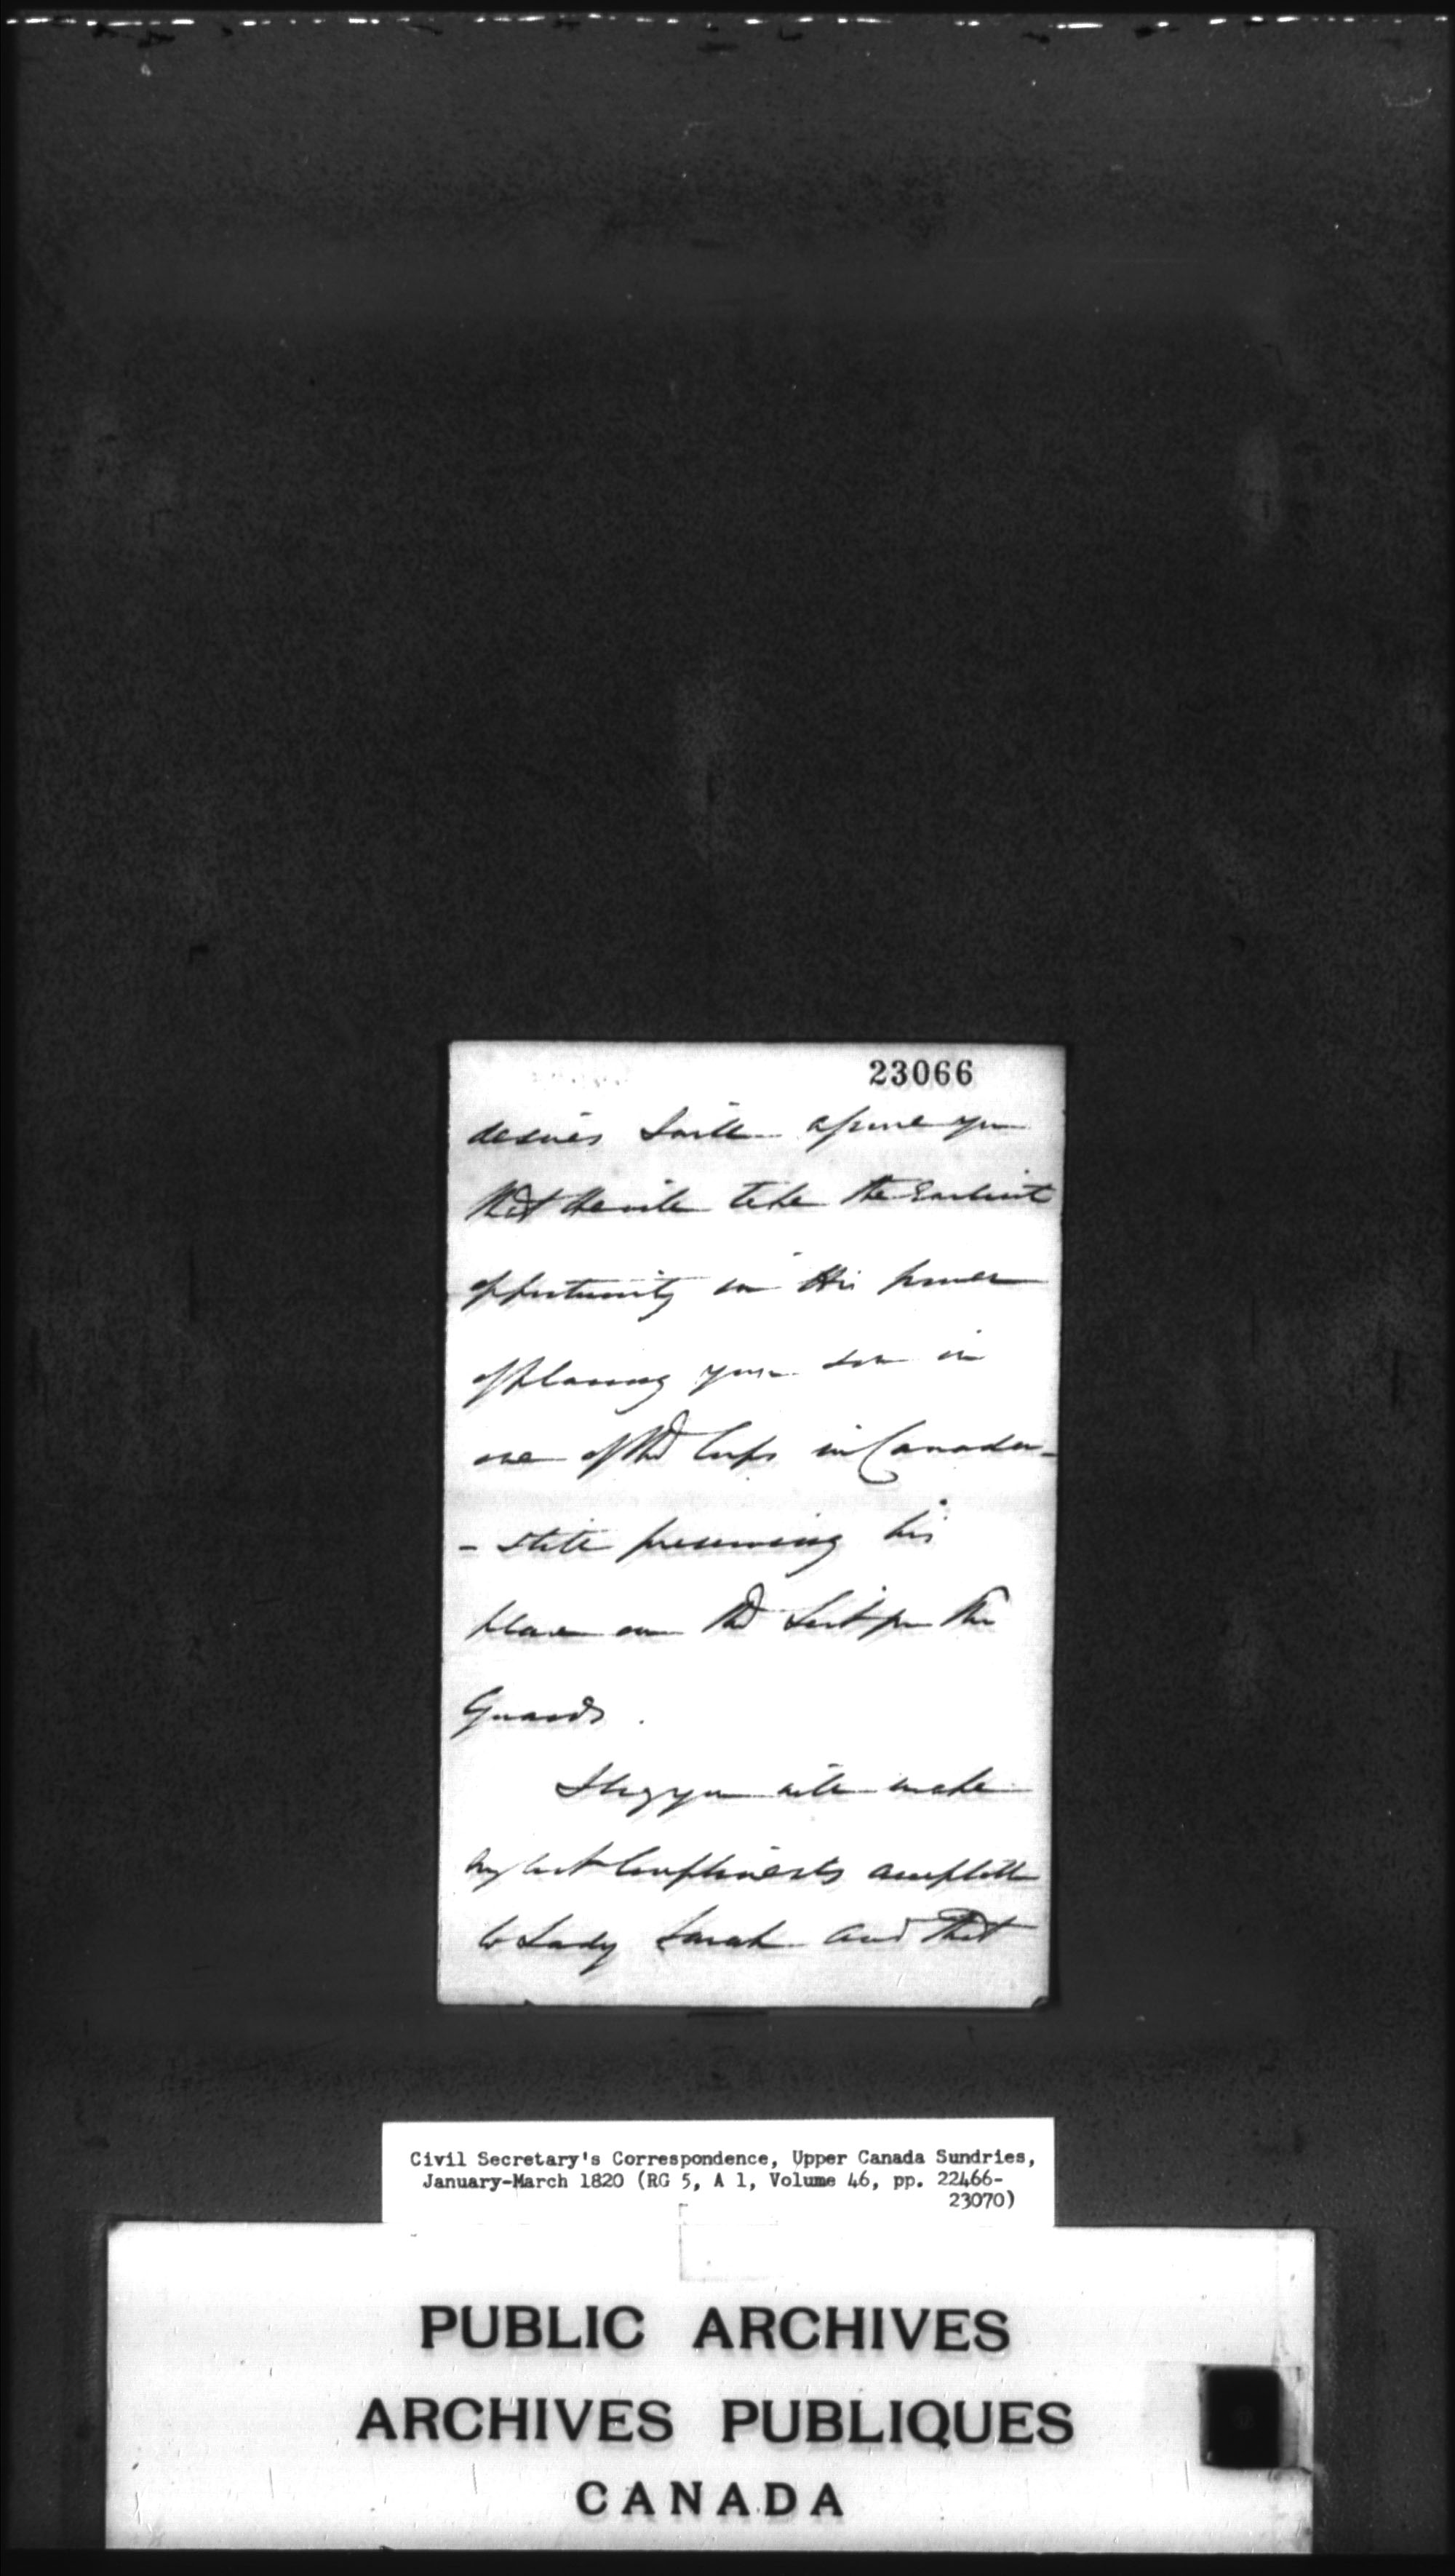 23066
desires I will assure you
that He will take the Earliest
opportunity in His power
of placing your son in
one of the Corps in Canada -
- still preserving his
place on the List for the
Guards .
I beg you will make
my best Compliments acceptable
to Lady Sarah and that
Civil Secretary's Correspondence, Upper Canada Sundries,
January-March 1820 (RG 5, A 1, Volume 46, pp. 22466-
23070)
PUBLIC ARCHIVES
ARCHIVES PUBLIQUES
CANADA